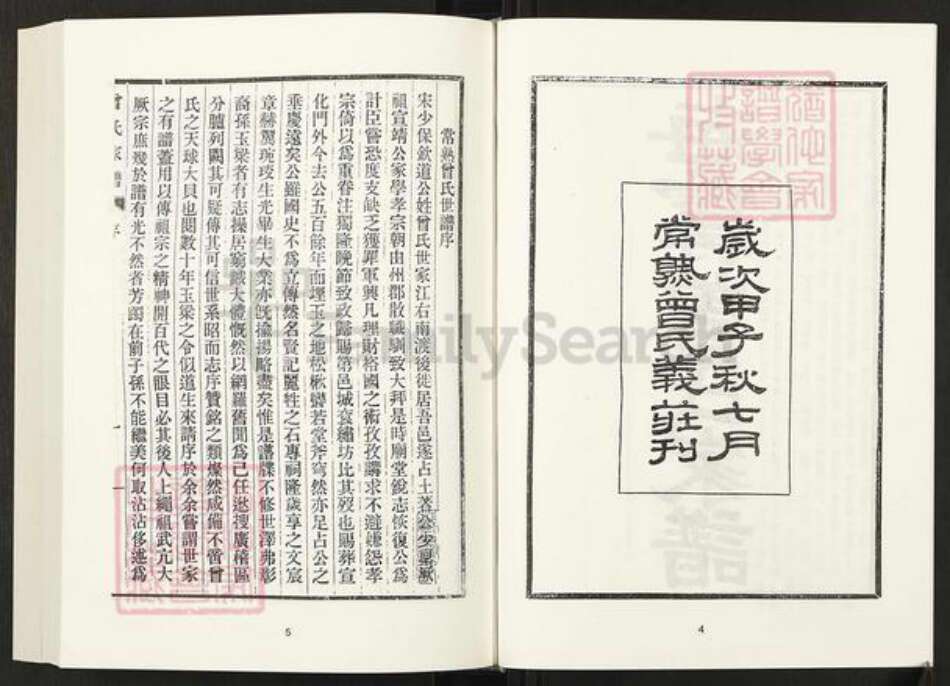 歲次甲子秋七月
常熟曾氏義莊刊
4
常熟曾氏世譜序
宋少保欽道公姓曾氏世家江右南渡後徙居吾邑遂占土著公少夀厥
祖宣靖公家學孝宗朝由州郡散職馴致大拜是時廟堂銳志恢復公為
計臣嘗恐度支缺乏獲罪軍興凡理財裕國之術孜孜講求不避嫌怨孝
宗倚以為重眷注獨隆晚節致政歸賜第邑城袞繡坊比其歿也賜葬宣
化門外今去公五百餘年而埋玉之地松楸鬱若堂斧穹然亦足占公之
垂慶遠矣公雖國史不為立傳然名賢記麗牲之石專祠隆歲享之文宸
章赫奕琬琰生光畢生大業亦旣揄揚略盡矣惟是譜牒不修世澤弗彰
裔孫玉梁者有志操居窮識大體慨然以網羅舊聞為己任逖搜廣稽區
分臚列闕其可疑傳其可信世系昭而志序贊銘之類燦然咸備不啻曾
氏之天球大貝也閱數十年玉梁之令似道生來請序於余余嘗謂世家
之有譜蓋用以傳祖宗之精神開百代之眼目必其後人上繩祖武亢大
厥宗庶幾於譜有光不然者芳躅在前子孫不能繼美何取沾沾侈述為
曾氏家譜 序 一
5
FamilySearch